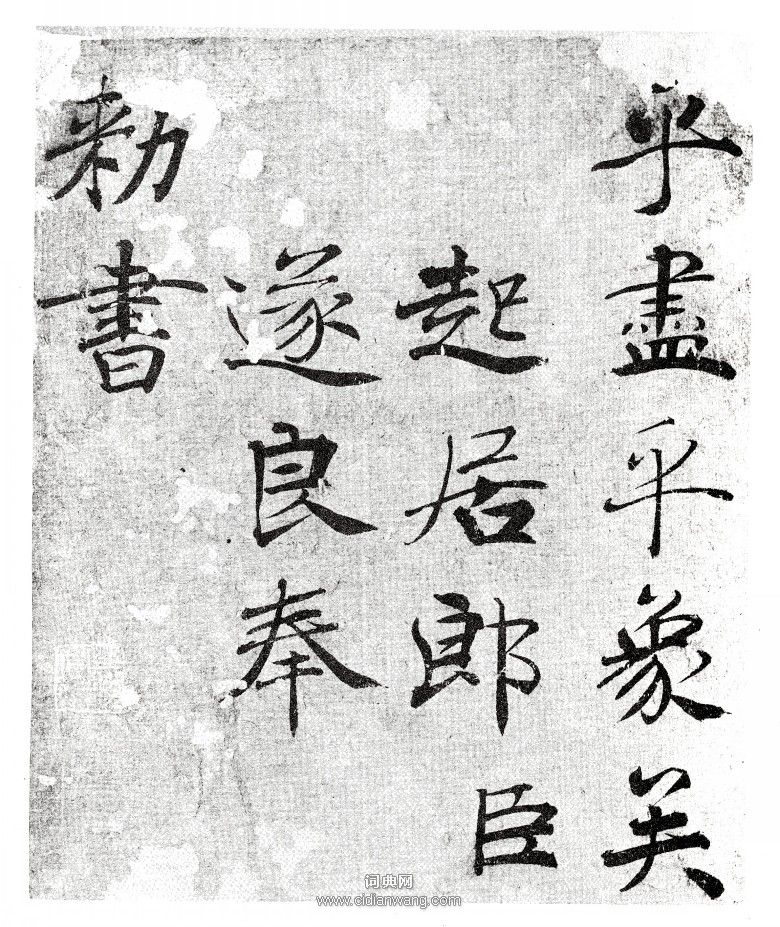 乎盡乎象矣
起居郎臣
遂良奉
勑書
词典网
www.cidianwang.com